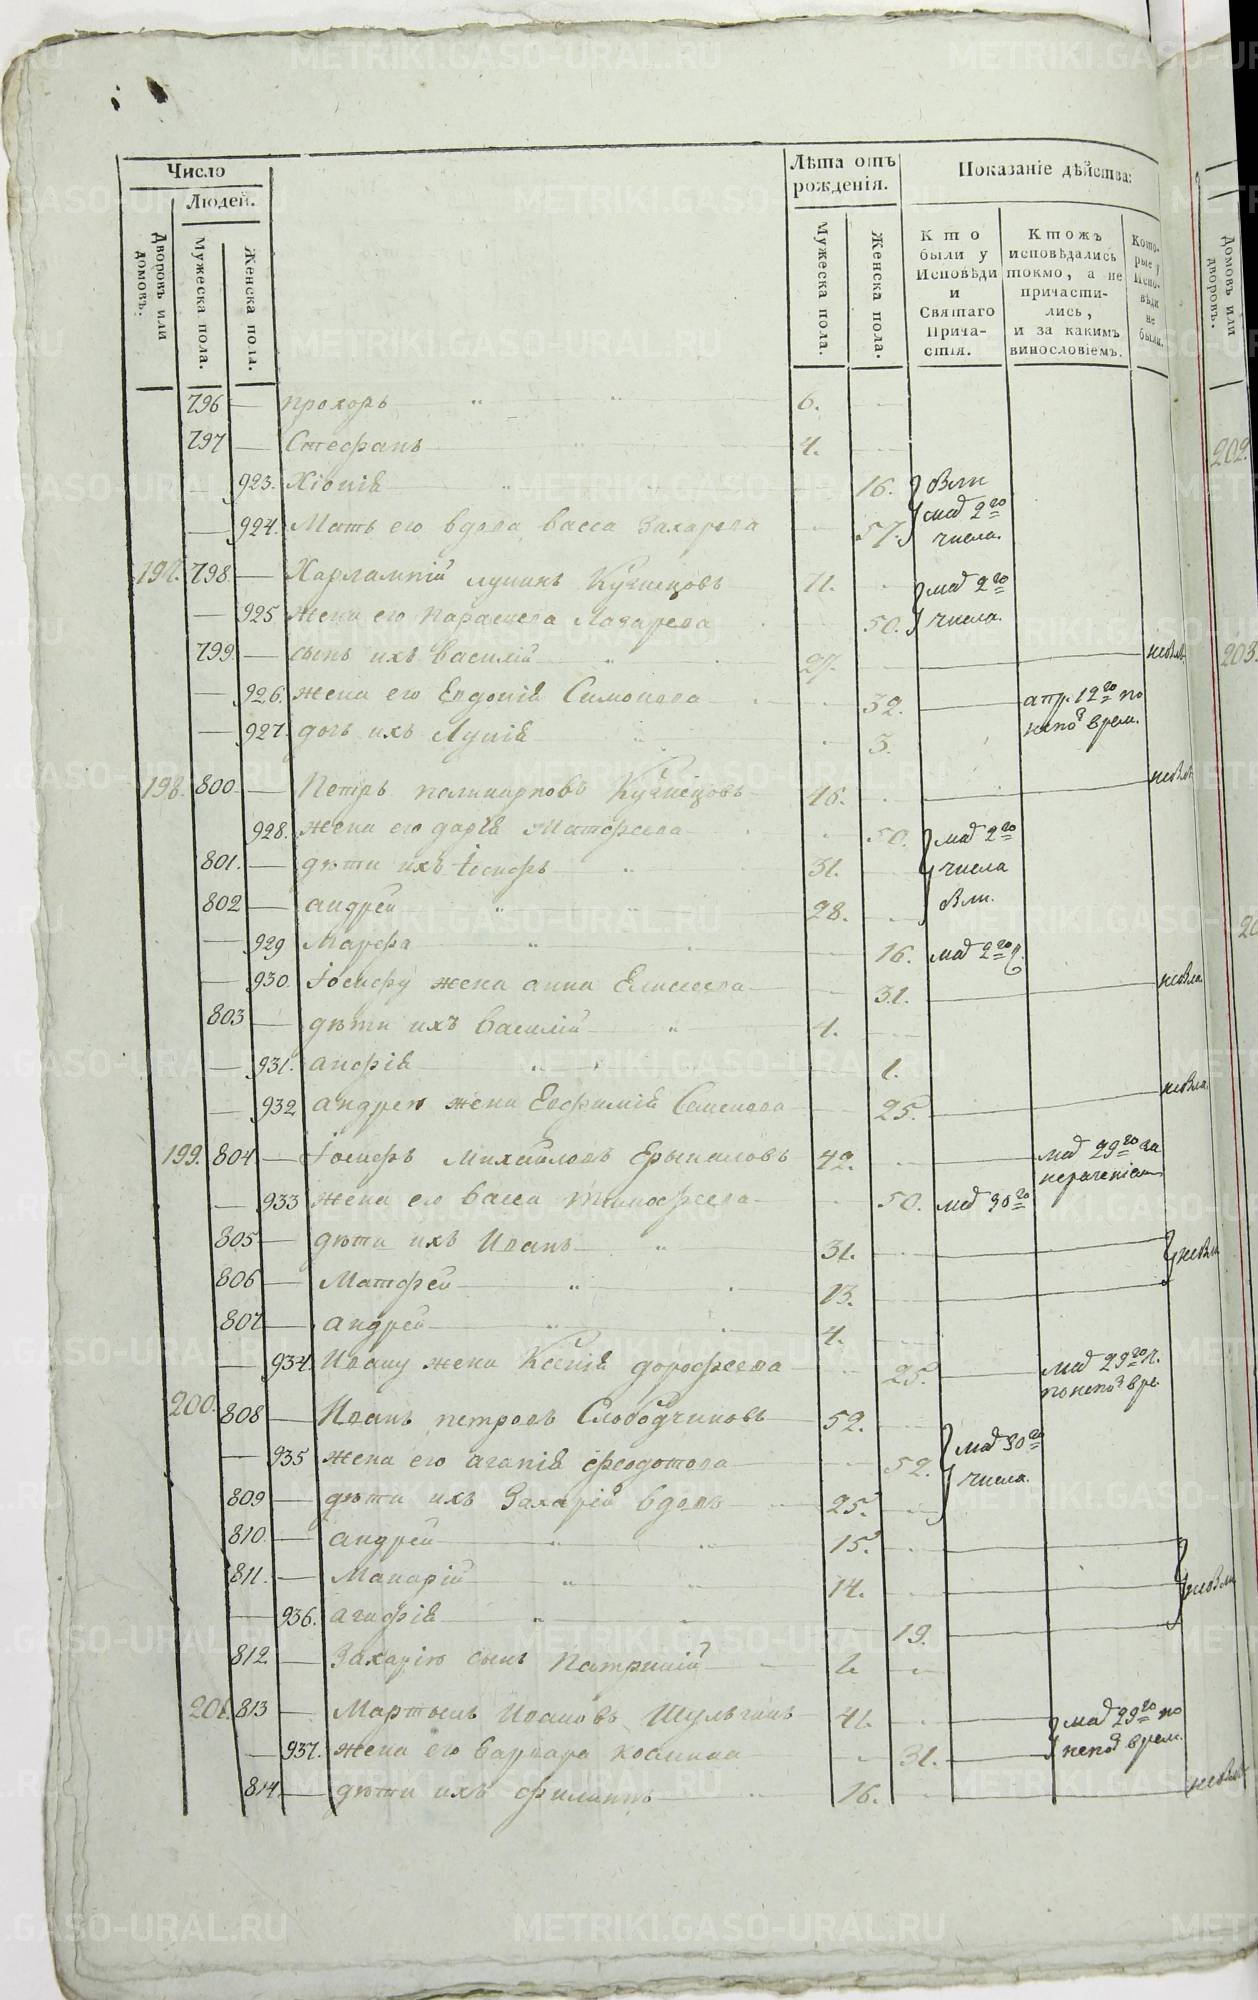 Число
Людей.
Дворовъ или домовъ.
Мужеска пола.
Женска пола.
Лѣта отъ рожденія.
Мужеска пола.
Женска пола.
Показаніе дѣйства:
Кто были у Исповѣди и Святаго Причастія.
Ктожъ исповѣдались токмо, а не причастились, и за какимъ винословіемъ.
Которые у Исповѣди не были.
Домовъ или дворовъ.
796 — прохоръ 6.
797 — Стефанъ 4. 202.
923. Хіонія 16. были
924. Мать его вдова васса Захарова 57. маӏ 2го числа.
197. 798 — Харлампій лукинъ Кузнецовъ 71. маӏ 2го
925 жена его параскева Лазарева 50. числа.
799. — сынъ ихъ василій 27. небылъ 203.
926. жена его Евдокія Симонова 32. апр. 12го по
927. дочь ихъ Лукія 3. непоӏ врем.
198. 800 — Петръ поликарповъ Кузнецовъ 46. небылъ
928. жена его дарія Матфеева 50. маӏ 2го
801. — дѣти ихъ іосифъ 31. числа
802 — андрей 28. были.
929 Марфа 16. маӏ 2го ч.
930. Іосифу жена анна Елисеева 31. небыла
803 — дѣти ихъ василій 4.
931. анфія 1.
932 андрею жена Евфимія Семенова 25. небыла.
199. 804 — Іосифъ Михайловъ Ерыкаловъ 42. маӏ 29го за нераченіем
933 жена его васса тимофеева 50. маӏ 30го
805 — дѣти ихъ Иванъ 31. небыли
806 — Матфей 13.
807 — андрей 4.
934. Ивану жена Ксенія дорофеева 25. маӏ 29го ч. по непоӏ вре.
200. 808 — Иванъ петровъ Слободчиковъ 52. маӏ 30го
935 жена его агапія федотова 52. числа.
809 — дѣти ихъ Захарій вдовъ 25.
810. — андрей 15.
811. — Макарій 14. небыли
936. агафія 19.
812 — Захарію сынъ Патрикій 2.
201. 813 — Мартынъ Ивановъ Шульгинъ 41. маӏ 29го по
937. жена его варвара 31. непоӏ врем.
814. — дѣти ихъ филиппъ 16. небылъ
METRIKI.GASO-URAL.RU